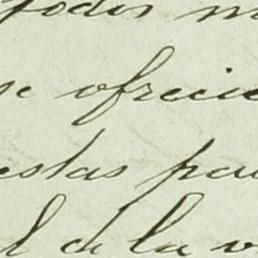 todis
se ofrecie
estas par
l de la v